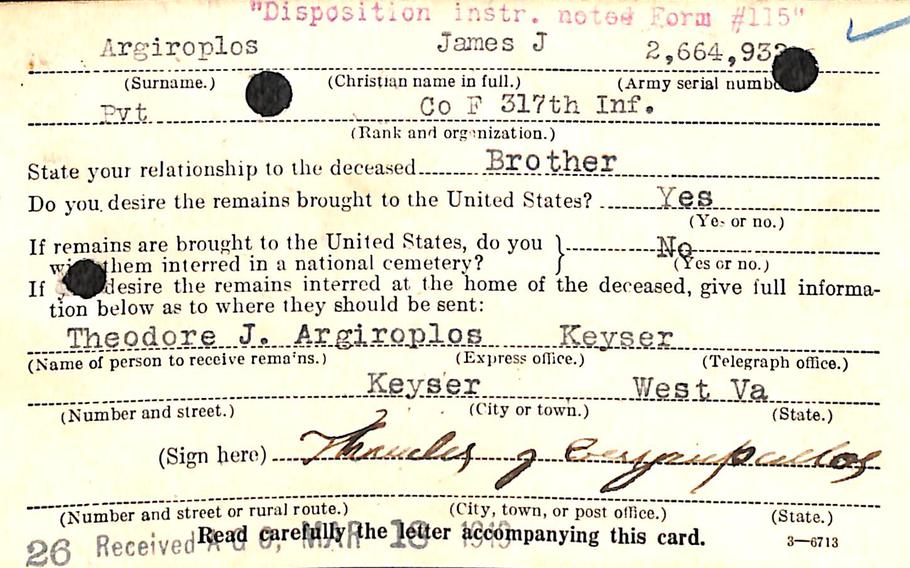 "Disposition instr. noted Form #115"
Argiroplos James J 2,664,932
(Surname.) (Christian name in full.) (Army serial numbe
Pvt Co F 317th Inf.
(Rank and organization.)
State your relationship to the deceased Brother
Do you desire the remains brought to the United States? Yes
(Yes or no.)
If remains are brought to the United States, do you } No
them interred in a national cemetery? (Yes or no.)
If desire the remains interred at the home of the deceased, give full informa-
tion below as to where they should be sent:
Theodore J. Argiroplos Keyser
(Name of person to receive remains.) (Express office.) (Telegraph office.)
Keyser West Va
(Number and street.) (City or town.) (State.)
(Sign here)
(Number and street or rural route.) (City, town, or post office.) (State.)
Read carefully the letter accompanying this card. 3—6713
26 Received A G O, MAR 18 1919